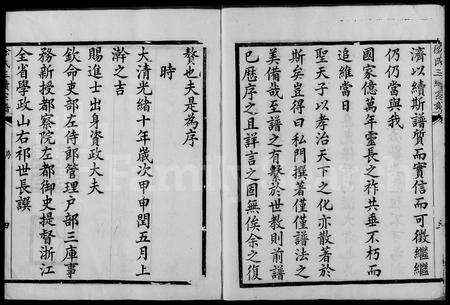 濟以續斯譜質而實信而可徵繼繼
仍仍當與我
國家億萬年靈長之祚共垂不朽而
追維當日
聖天子以孝治天下之化亦散者於
斯矣豈得曰私門撰著僅僅譜法之
美備哉至譜之有繫於世教則前譜
已歷序之且詳言之固無俟余之復
贅也夫是為序
時
大清光緒十年歲次甲申閏五月上
澣之吉
賜進士出身資政大夫
欽命吏部左侍郎管理户部三庫事
務新授都察院左都御史提督浙江
全省學政山右祁世長譔
序
四